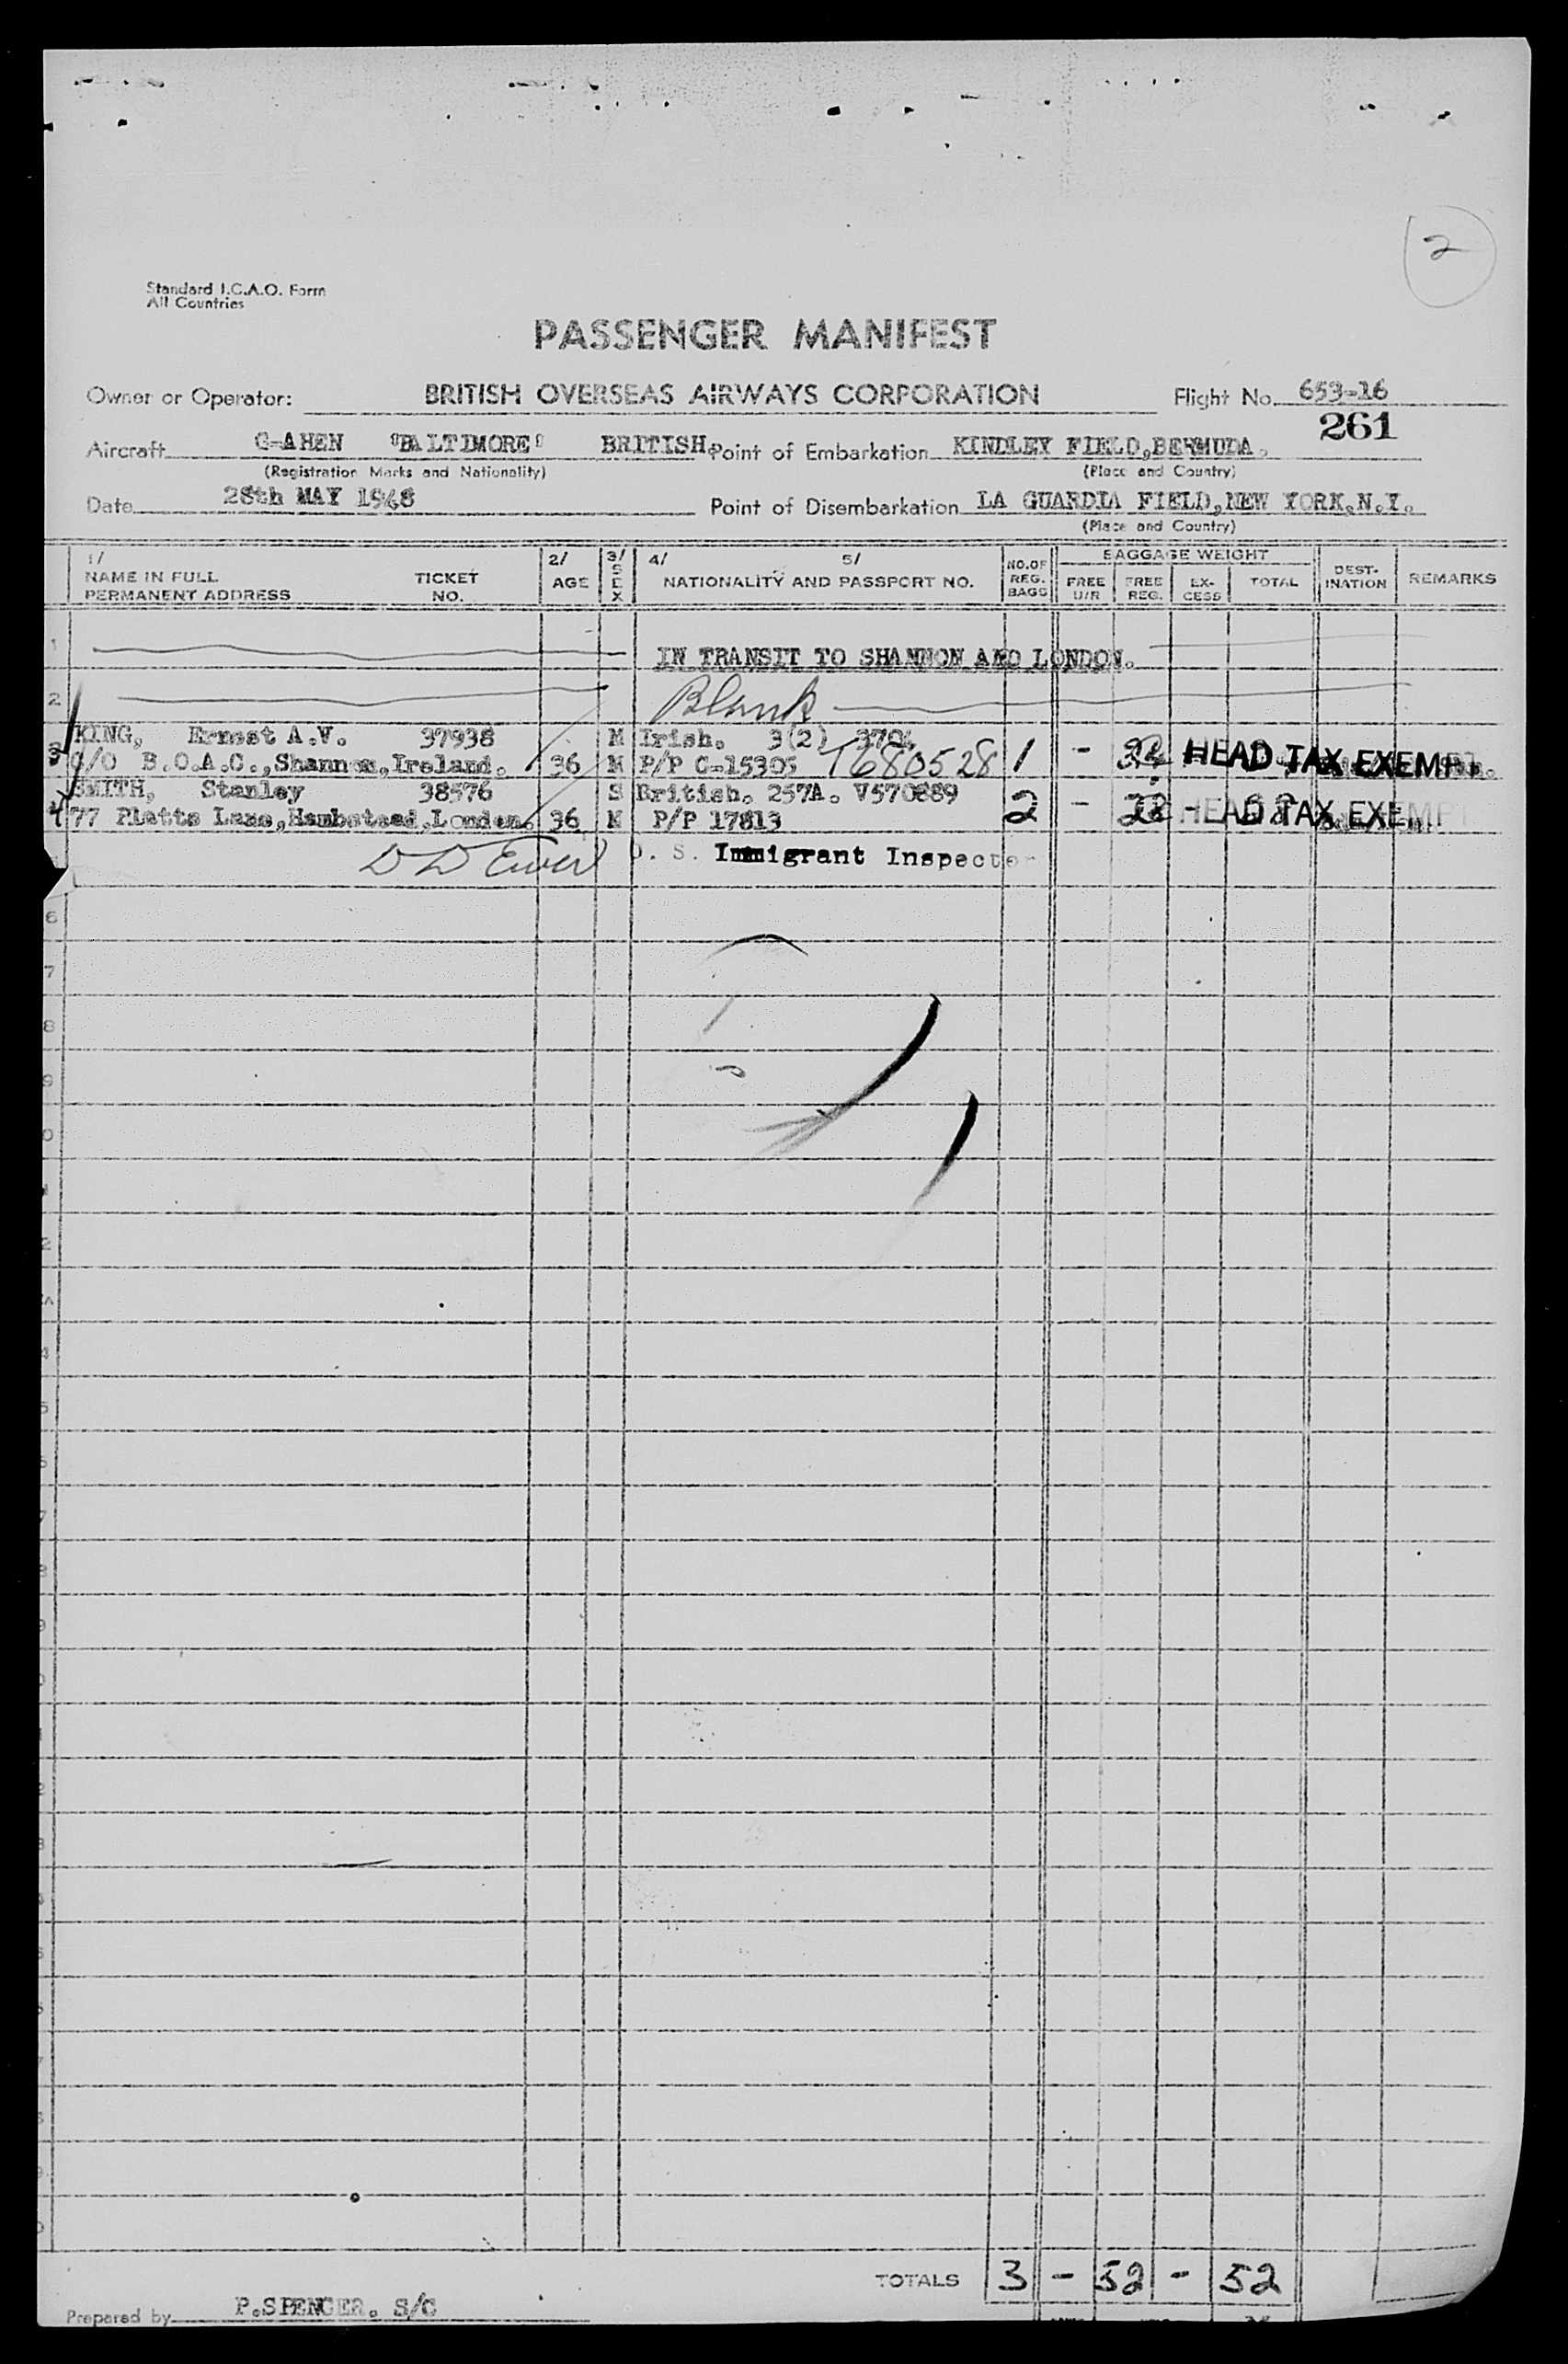 2
Standard I.C.A.O. Form
All Countries
PASSENGER MANIFEST
Owner or Operator: BRITISH OVERSEAS AIRWAYS CORPORATION Flight No. 653-16
261
Aircraft G-AHEN "BALTIMORE" BRITISH. Point of Embarkation KINDLEY FIELD, BERMUDA.
(Registration Marks and Nationality) (Place and Country)
Date 28th MAY 1948 Point of Disembarkation LA GUARDIA FIELD, NEW YORK. N.Y.
(Place and Country)
1/ NAME IN FULL PERMANENT ADDRESS TICKET NO. 2/ AGE 3/ SEX 4/ 5/ NATIONALITY AND PASSPORT NO. NO. OF REG. BAGS BAGGAGE WEIGHT FREE U/R FREE REG. EX-CESS TOTAL DEST-INATION REMARKS
1 IN TRANSIT TO SHANNON AND LONDON.
2 Blank
KING, Ernest A.V. 37938 M Irish. 3(2)
3 C/O B.O.A.C., Shannon, Ireland. 36 M P/P C-15305 T680528 1 - HEAD TAX EXEMP
SMITH, Stanley 38576 S British. 257A. V570889
4 77 Platts Lane, Hambstead, London. 36 M P/P 17813 2 - HEAD TAX EXE
U. S. Immigrant Inspector
6
7
8
9
TOTALS 3 - 52 - 52
Prepared by P. SPENCER. S/C